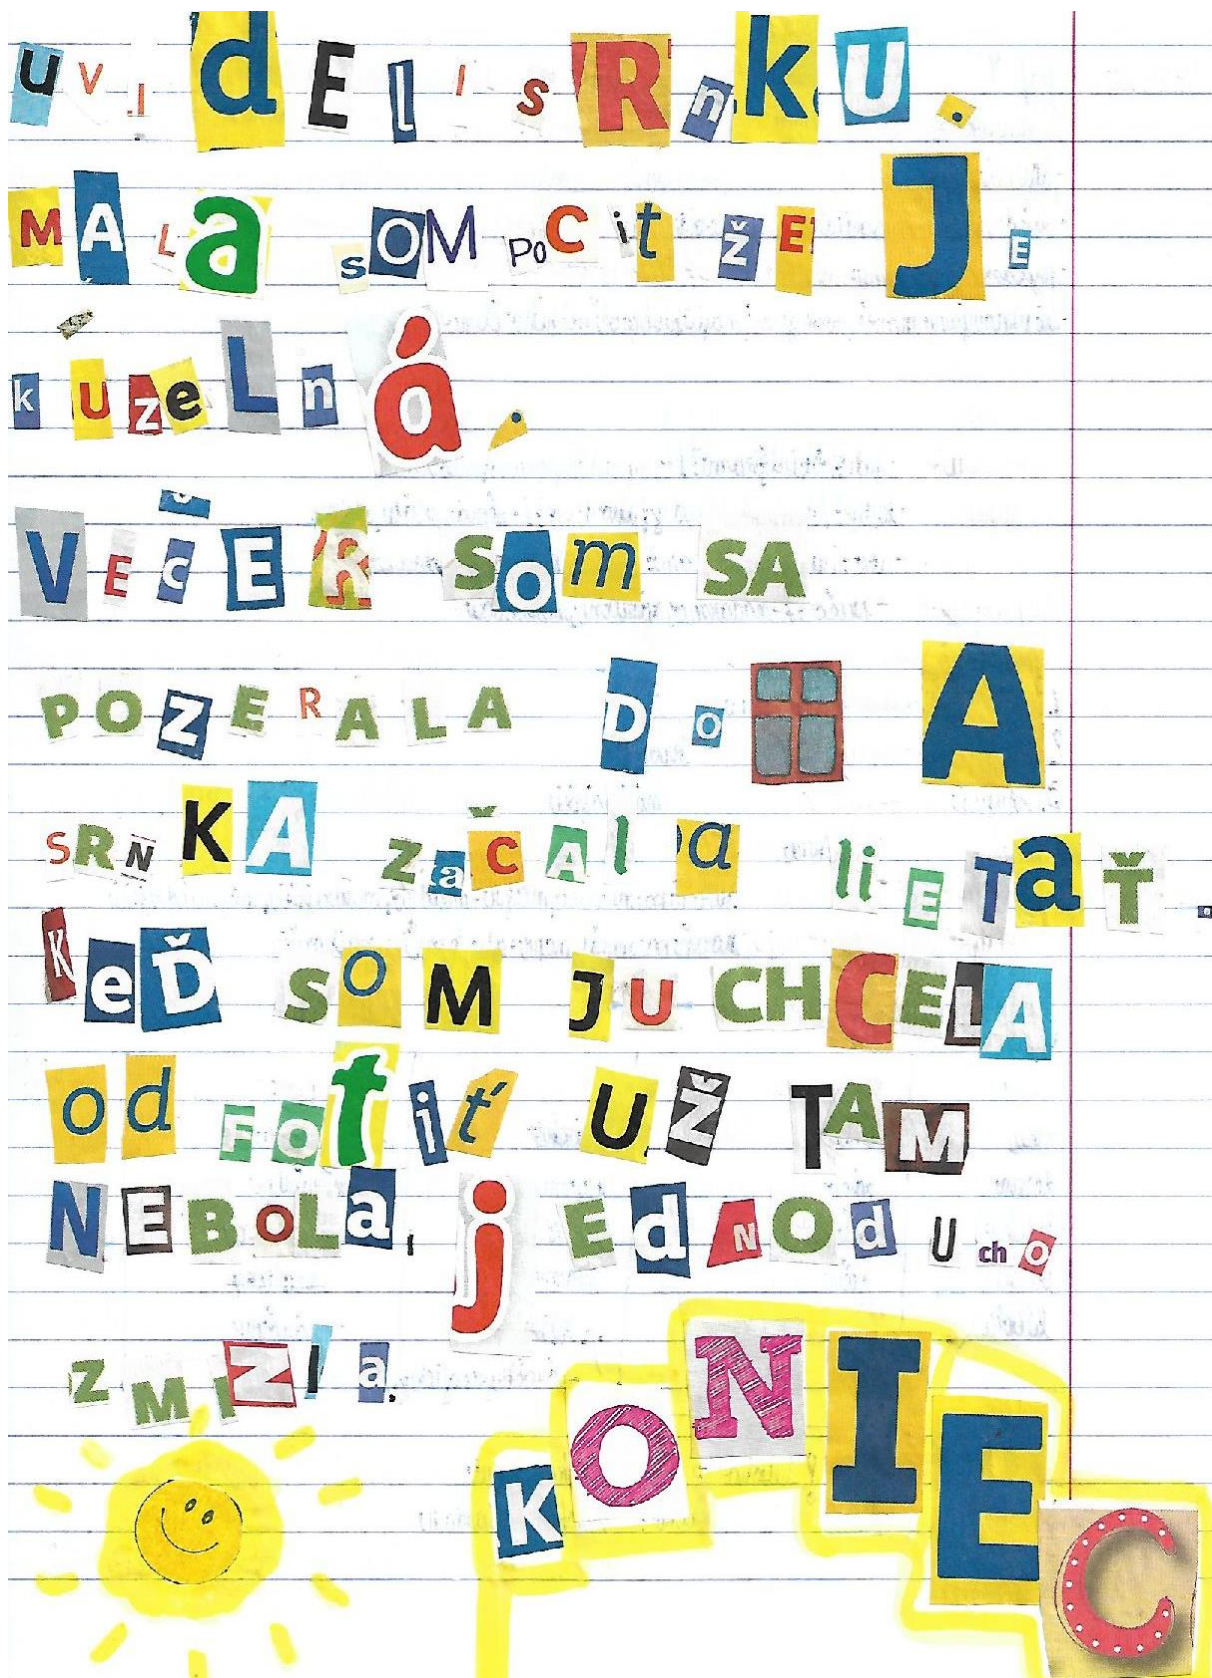 uVIdELI sRnkU.
MALa sOM PoCit ŽE JE
kÚzeLná.
VEČER SOm SA
POZERALA DO A
SRNKA ZaČAla liETaŤ.
KeĎ SOM JU CHCELA
od FOtiť UŽ TAM
NEBOLa, jEdNOdUchO
ZMIZla.
KONIEC